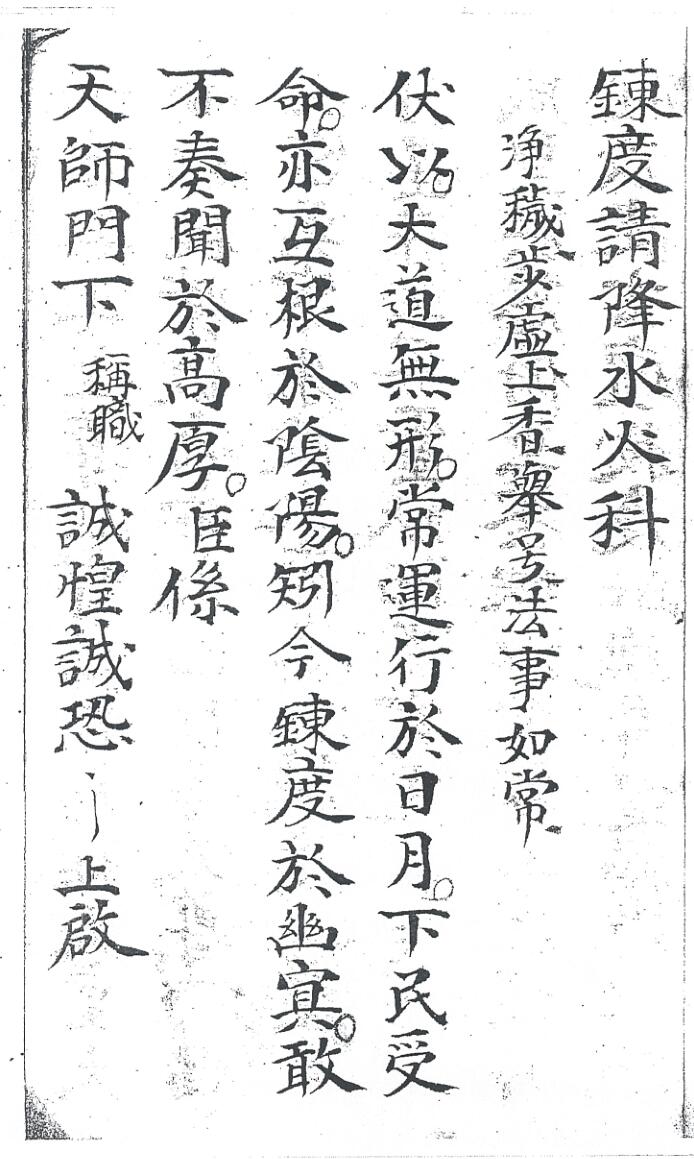 鍊度請降水火科
净穢步虛上香舉号法事如常
伏以。大道無形。常運行於日月。下民受
命。亦互根於陰陽。矧今鍊度於幽冥。敢
不奏聞於高厚。臣係
天師門下 稱職 誠惶誠恐〻上啟